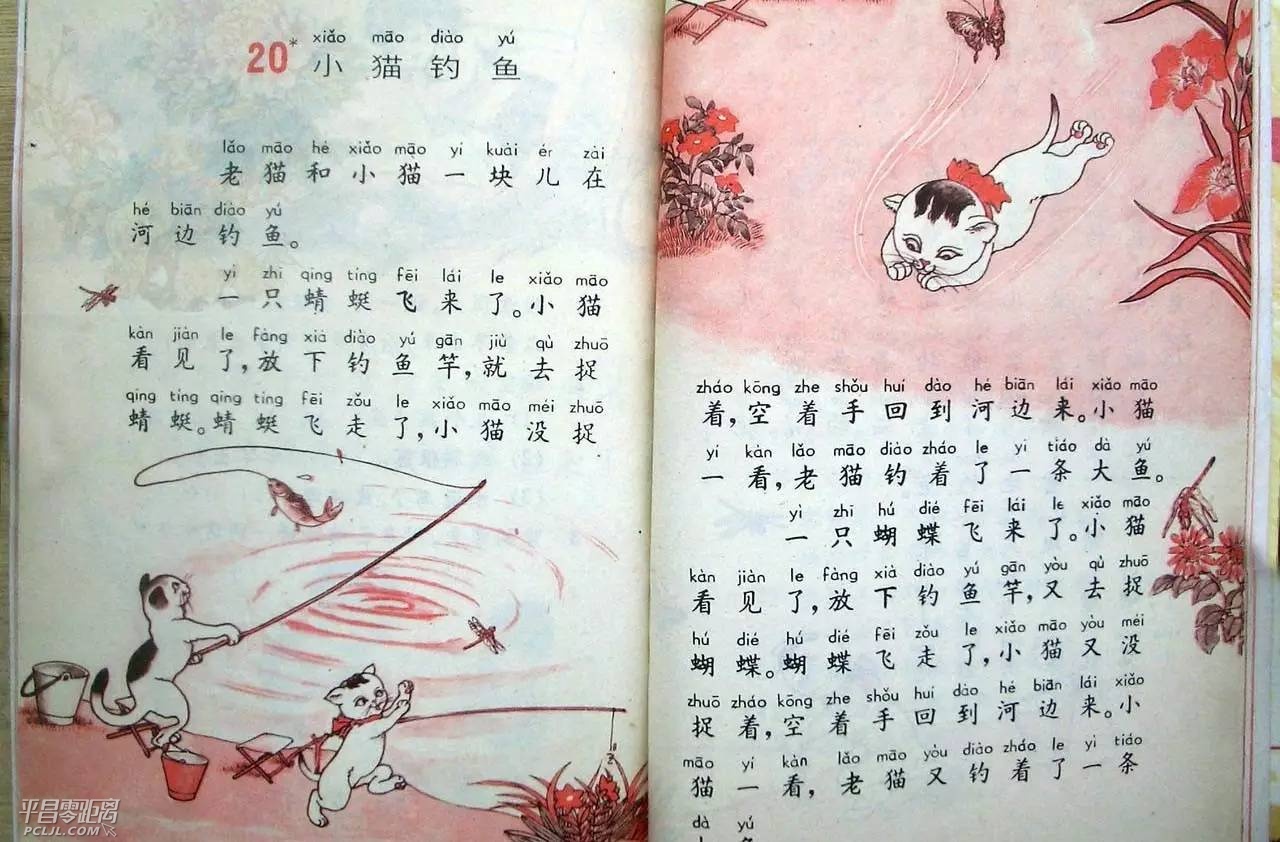 xiǎo māo diào yú
20* 小猫钓鱼
lǎo māo hé xiǎo māo yí kuài ér zài
老猫和小猫一块儿在
hé biān diào yú
河边钓鱼。
yì zhī qīng tíng fēi lái le xiǎo māo
一只蜻蜓飞来了。小猫
kàn jiàn le fàng xià diào yú gān jiù qù zhuō
看见了,放下钓鱼竿,就去捉
qīng tíng qīng tíng fēi zǒu le xiǎo māo méi zhuō
蜻蜓。蜻蜓飞走了,小猫没捉
zháo kōng zhe shǒu huí dào hé biān lái xiǎo māo
着,空着手回到河边来。小猫
yí kàn lǎo māo diào zháo le yì tiáo dà yú
一看,老猫钓着了一条大鱼。
yì zhī hú dié fēi lái le xiǎo māo
一只蝴蝶飞来了。小猫
kàn jiàn le fàng xià diào yú gān yòu qù zhuō
看见了,放下钓鱼竿,又去捉
hú dié hú dié fēi zǒu le xiǎo māo yòu méi
蝴蝶。蝴蝶飞走了,小猫又没
zhuō zháo kōng zhe shǒu huí dào hé biān lái xiǎo
捉着,空着手回到河边来。小
māo yí kàn lǎo māo yòu diào zháo le yì tiáo
猫一看,老猫又钓着了一条
dà yú
平昌零距离
PCLJL.COM